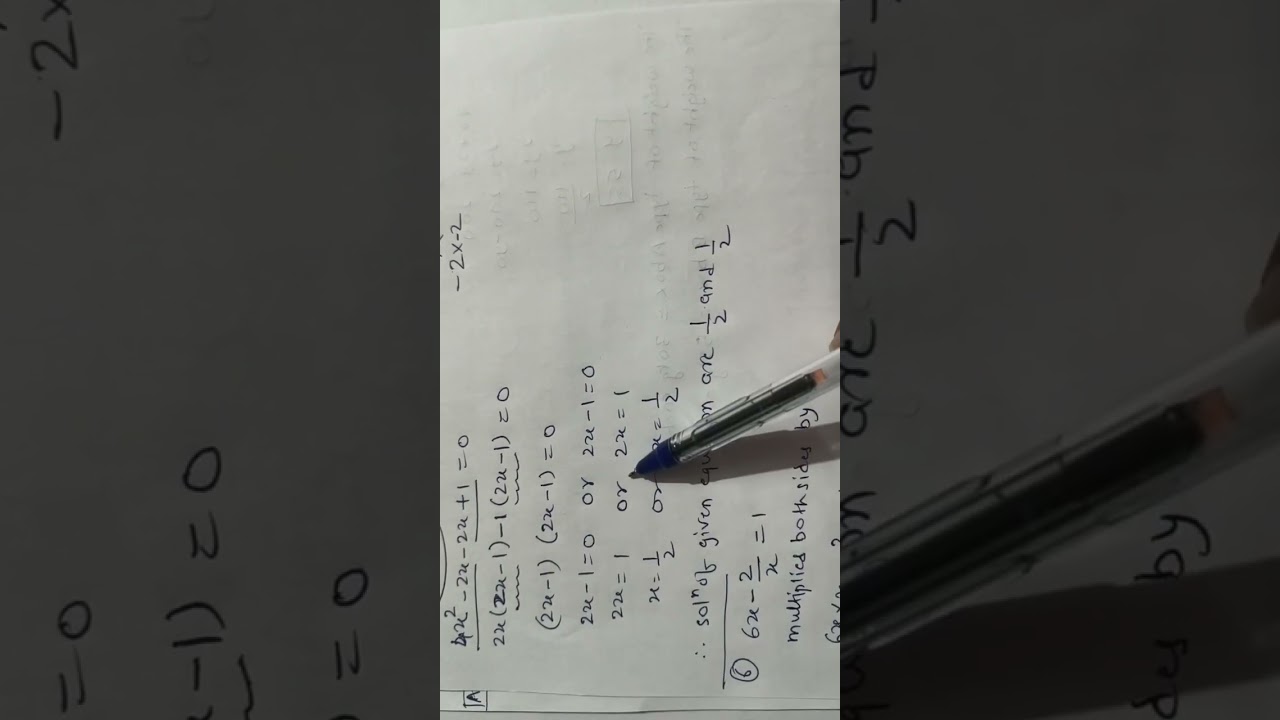 4x² - 2x - 2x + 1 = 0
- 2x - 2
2x(2x-1) - 1(2x-1) = 0
(2x-1) (2x-1) = 0
2x-1=0 or 2x-1=0
2x=1 or 2x=1
x=1/2 or x=1/2
∴ solⁿ of given are 1/2 and 1/2
⑥ 6x - 2/x = 1
multiplied both sides by